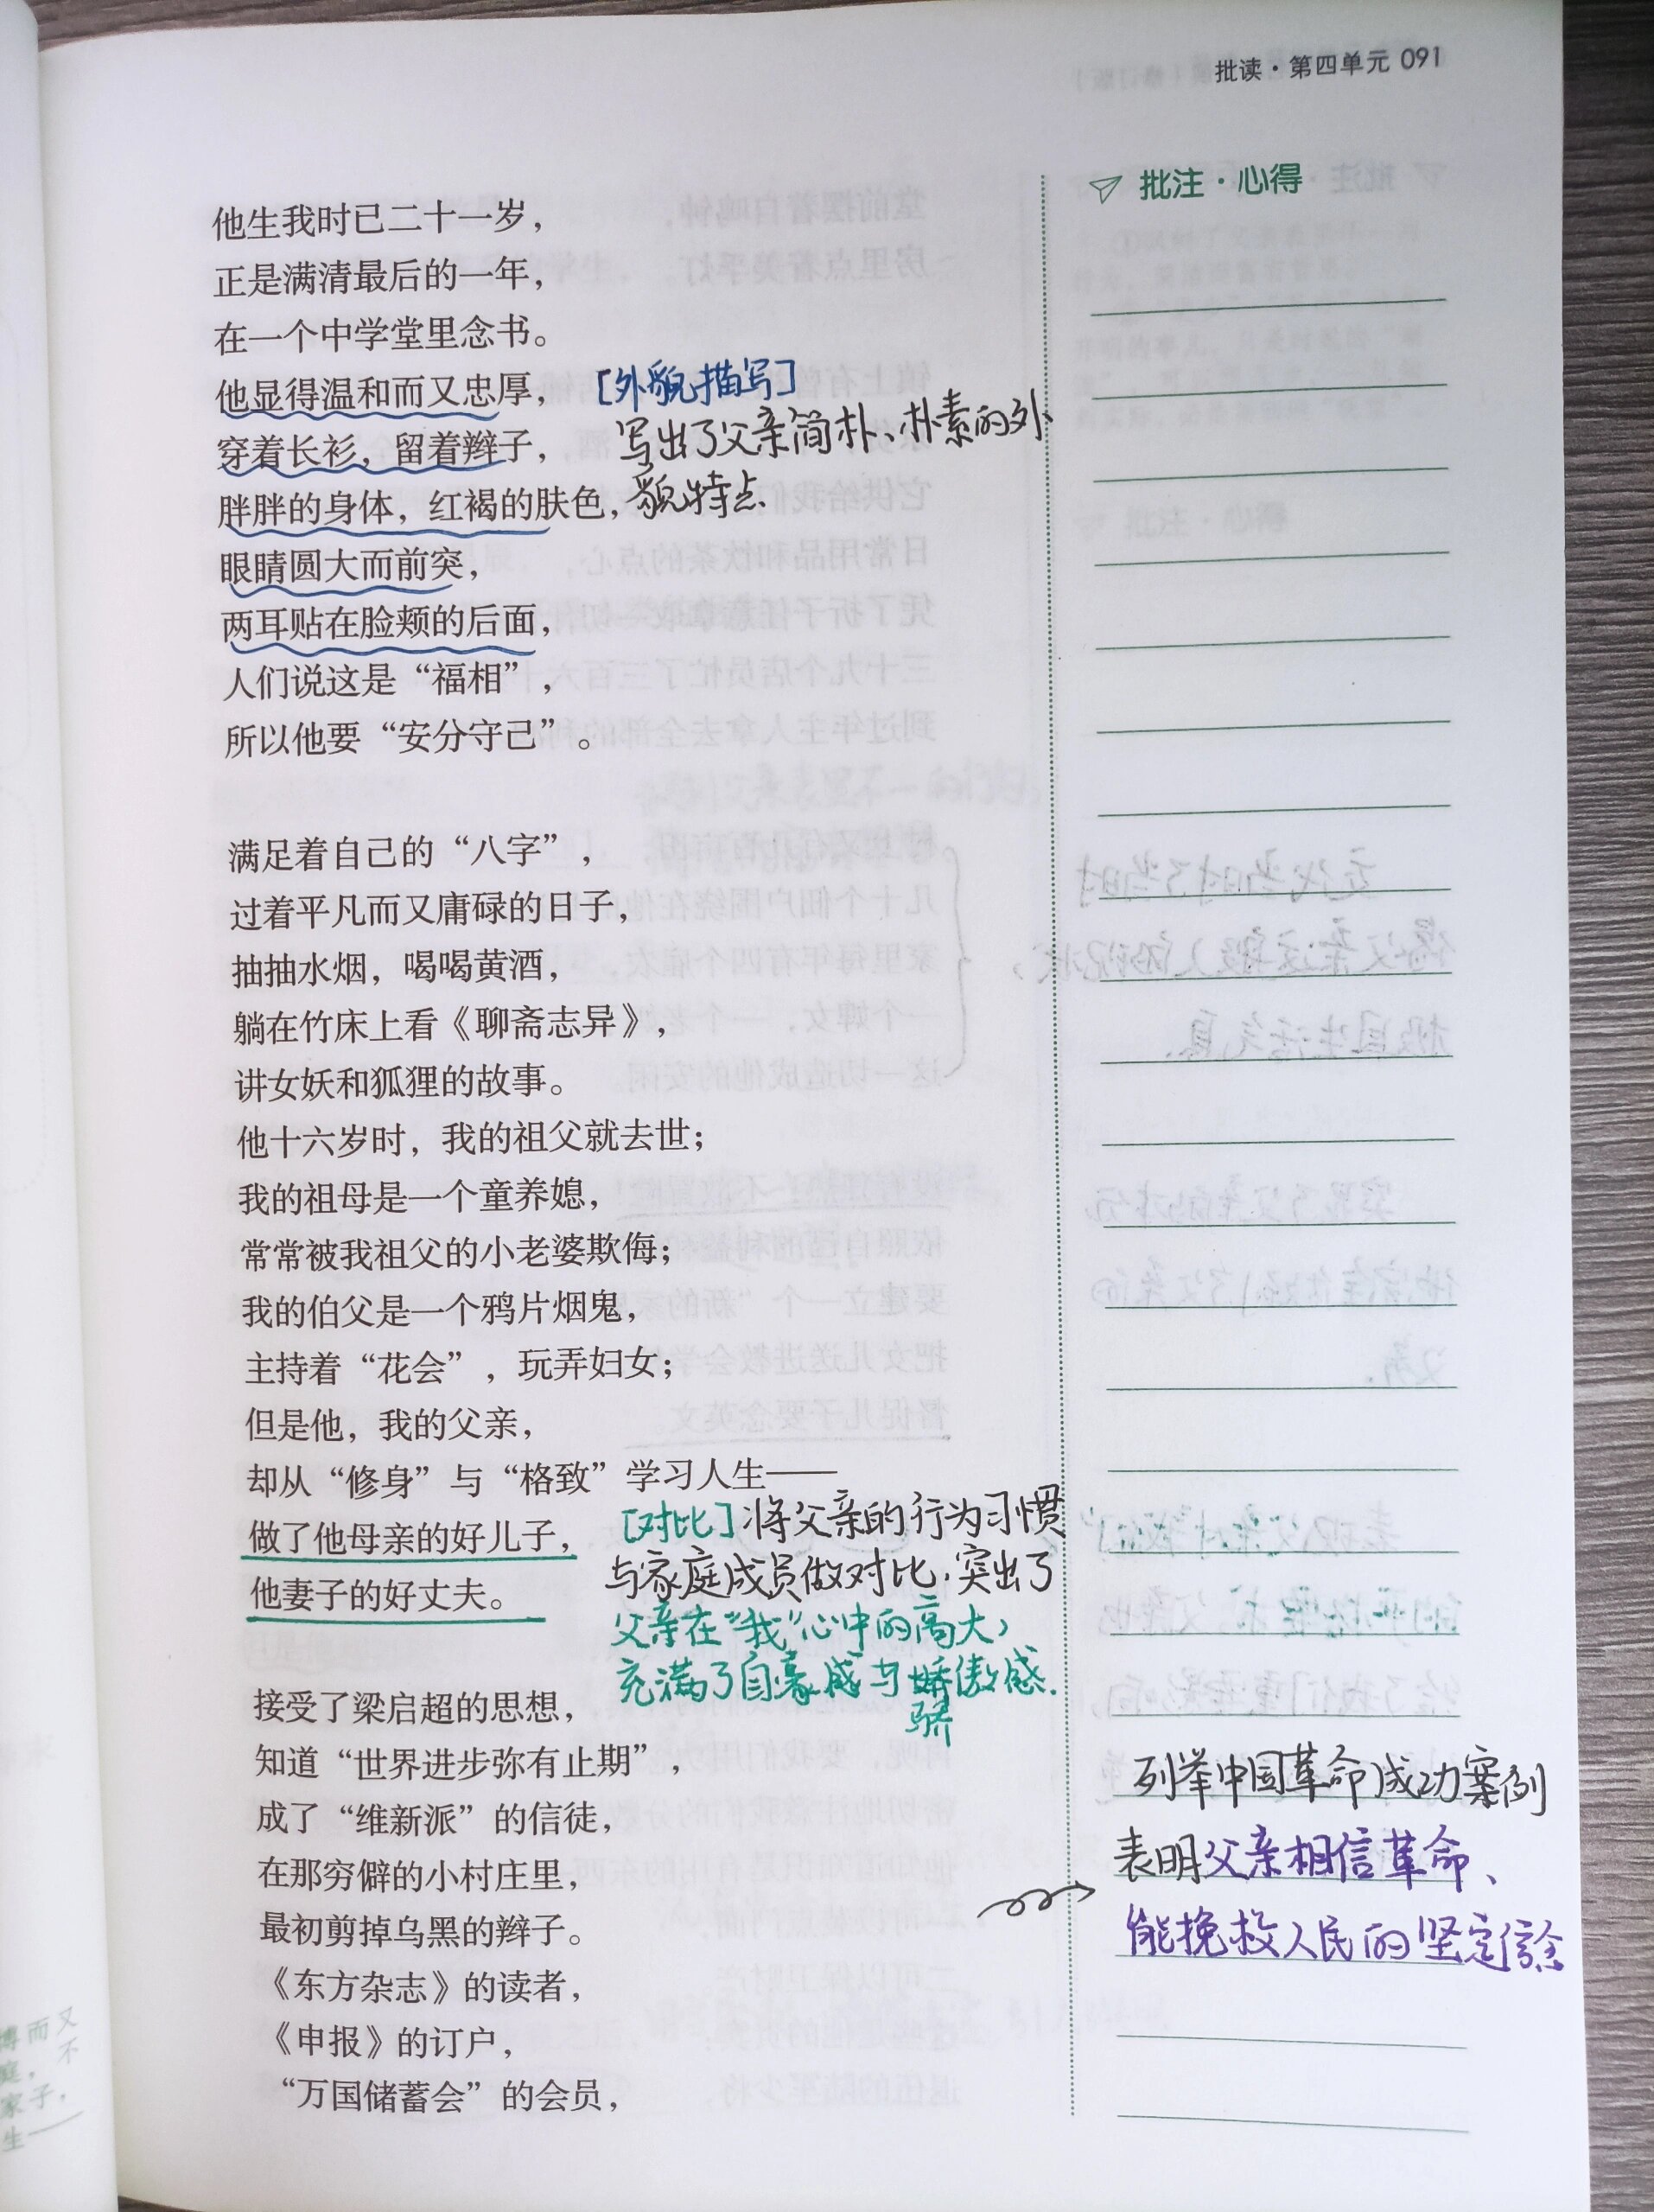 批读·第四单元 091
批注·心得
他生我时已二十一岁，
正是满清最后的一年，
在一个中学堂里念书。
他显得温和而又忠厚，
[外貌描写]
穿着长衫，留着辫子，
写出了父亲简朴、朴素的外
胖胖的身体，红褐的肤色，
貌特点.
眼睛圆大而前突，
两耳贴在脸颊的后面，
人们说这是“福相”，
所以他要“安分守己”。
满足着自己的“八字”，
过着平凡而又庸碌的日子，
抽抽水烟，喝喝黄酒，
躺在竹床上看《聊斋志异》，
讲女妖和狐狸的故事。
他十六岁时，我的祖父就去世；
我的祖母是一个童养媳，
常常被我祖父的小老婆欺侮；
我的伯父是一个鸦片烟鬼，
主持着“花会”，玩弄妇女；
但是他，我的父亲，
却从“修身”与“格致”学习人生——
做了他母亲的好儿子，
他妻子的好丈夫。
[对比]将父亲的行为习惯
与家庭成员做对比，突出了
父亲在“我”心中的高大，
充满了自豪感与娇傲感.
骄
接受了梁启超的思想，
知道“世界进步弥有止期”，
成了“维新派”的信徒，
在那穷僻的小村庄里，
最初剪掉乌黑的辫子。
列举中国革命成功案例
表明父亲相信革命、
能挽救人民的坚定信念
《东方杂志》的读者，
《申报》的订户，
“万国储蓄会”的会员，
博而又
庭，不
家子，
生——